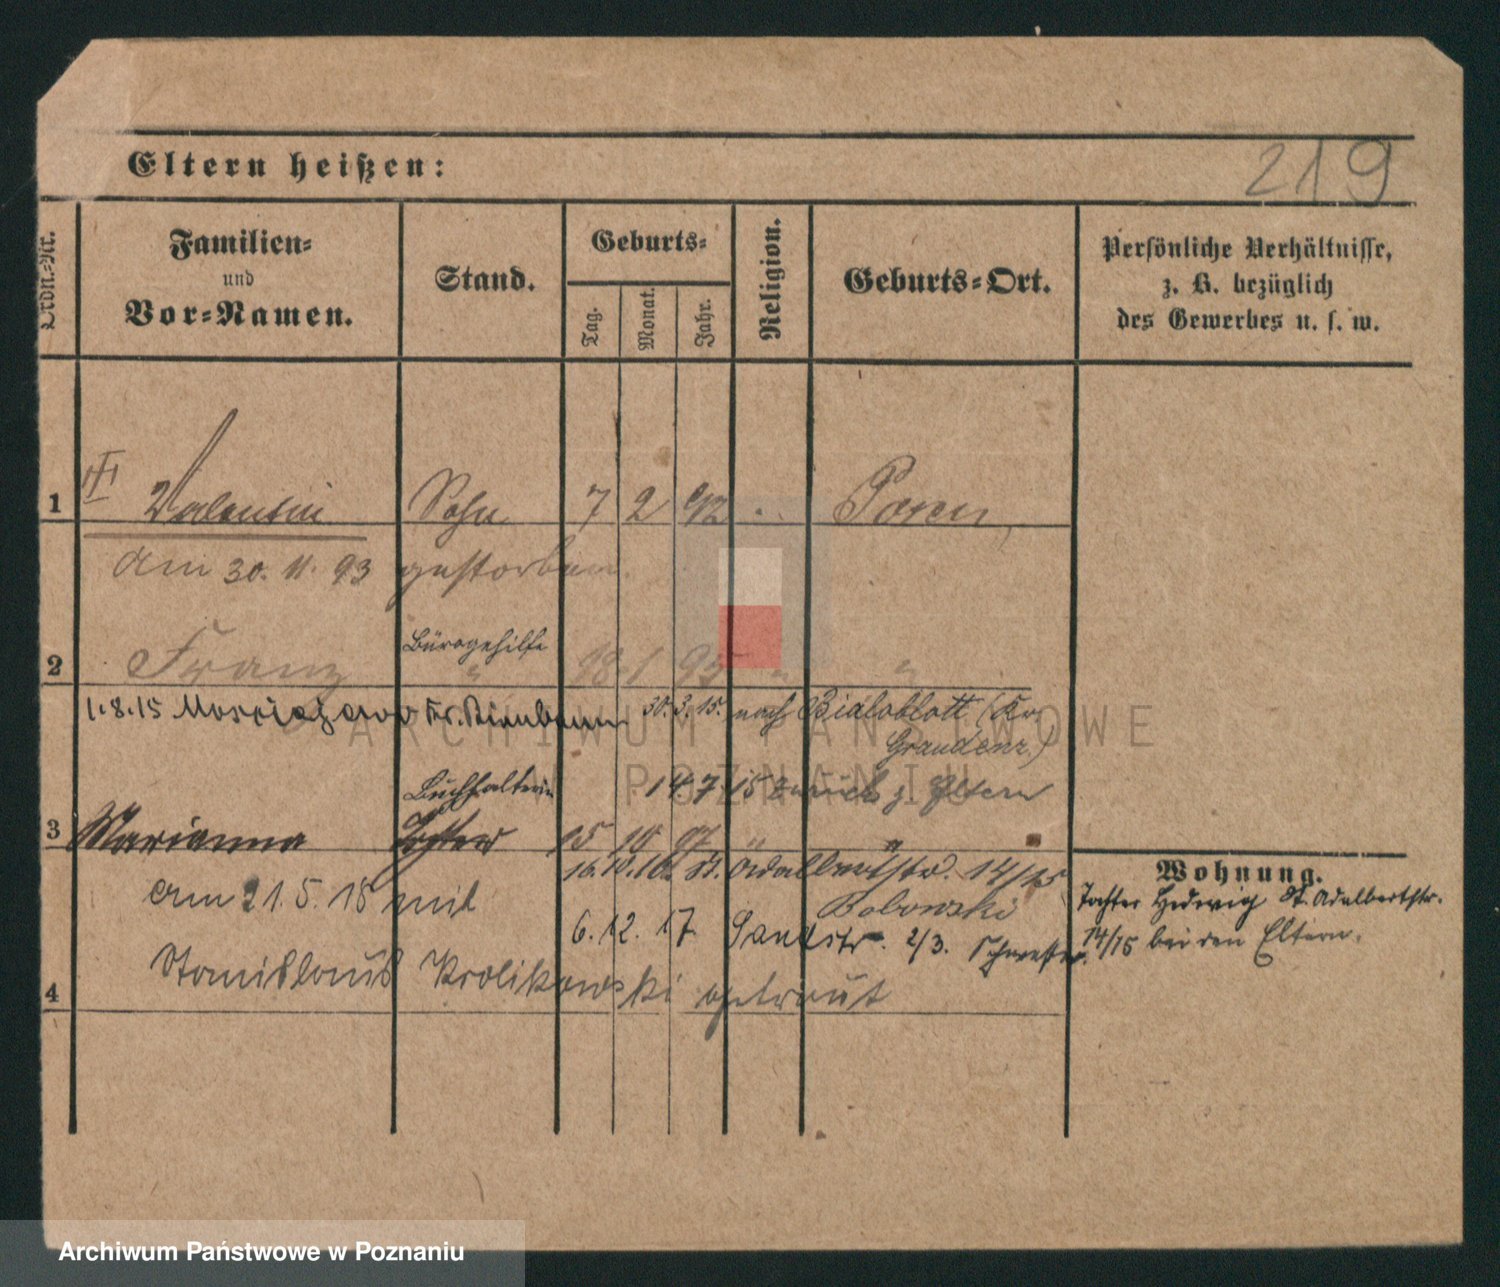 Eltern heißen:
219
Ordn.-Nr.
Familien-
und
Vor-Namen.
Stand.
Geburts-
Tag.
Monat.
Jahr.
Religion.
Geburts-Ort.
Persönliche Verhältnisse,
z. B. bezüglich
des Gewerbes u. s. w.
1 Valentin Sohn 7 2 92 Posen
am 30. 11. 93 gestorben
Bürogehilfe
2 Franz " 18 1 95 " "
1.8.15 Kr. Birnbaum 30. 3. 15. nach Bialoblott (Kr.
Graudenz.)
Buchhalterin 14. 7 15 zurück z. Eltern
3 Marianna Tochter 15 10 97 " "
16. 10. 16. St. Adalbertstr. 14/15
Bobowski
am 21. 5. 18 mit
6. 12. 17. Sandstr. 2/3. Schwester.
Stanislaus Krolikowski getraut
4
Wohnung.
Tochter Hedwig St. Adalbertstr.
14/15 bei den Eltern.
ARCHIWUM PAŃSTWOWE
W POZNANIU
Archiwum Państwowe w Poznaniu